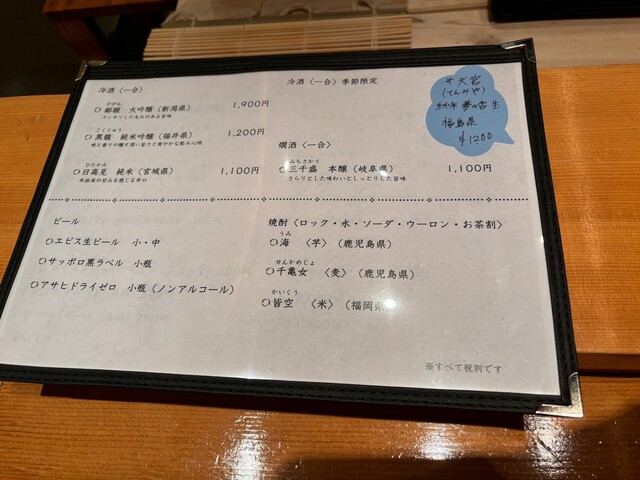 冷酒〈一合〉
ひがん
○郷願 大吟醸（新潟県） 1,900円
スッキリした丸みのある旨味
こくりゅう
○黒龍 純米吟醸（福井県） 1,200円
味と香りの醸す深い旨さと爽やかな飲み心地
ひたかみ
○日高見 純米（宮城県） 1,100円
米由来の甘みを感じる辛口
冷酒〈一合〉季節限定
天宮
（てんみや）
夢の香 生
福島県
¥1200
燗酒〈一合〉
みちさかり
○三千盛 本醸（岐阜県） 1,100円
さらりとした味わいとしっとりした旨味
ビール
○エビス生ビール 小・中
○サッポロ黒ラベル 小瓶
○アサヒドライゼロ 小瓶（ノンアルコール）
焼酎〈ロック・水・ソーダ・ウーロン・お茶割〉
うみ
○海 〈芋〉（鹿児島県）
せんかめじょ
○千亀女 〈麦〉（鹿児島県）
かいくう
○皆空 〈米〉（福岡県
※すべて税別です